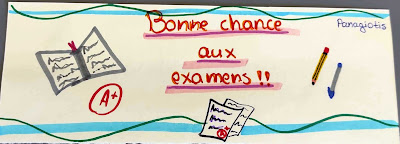 Bonne chance
Panagiotis
aux
examens!!
A+